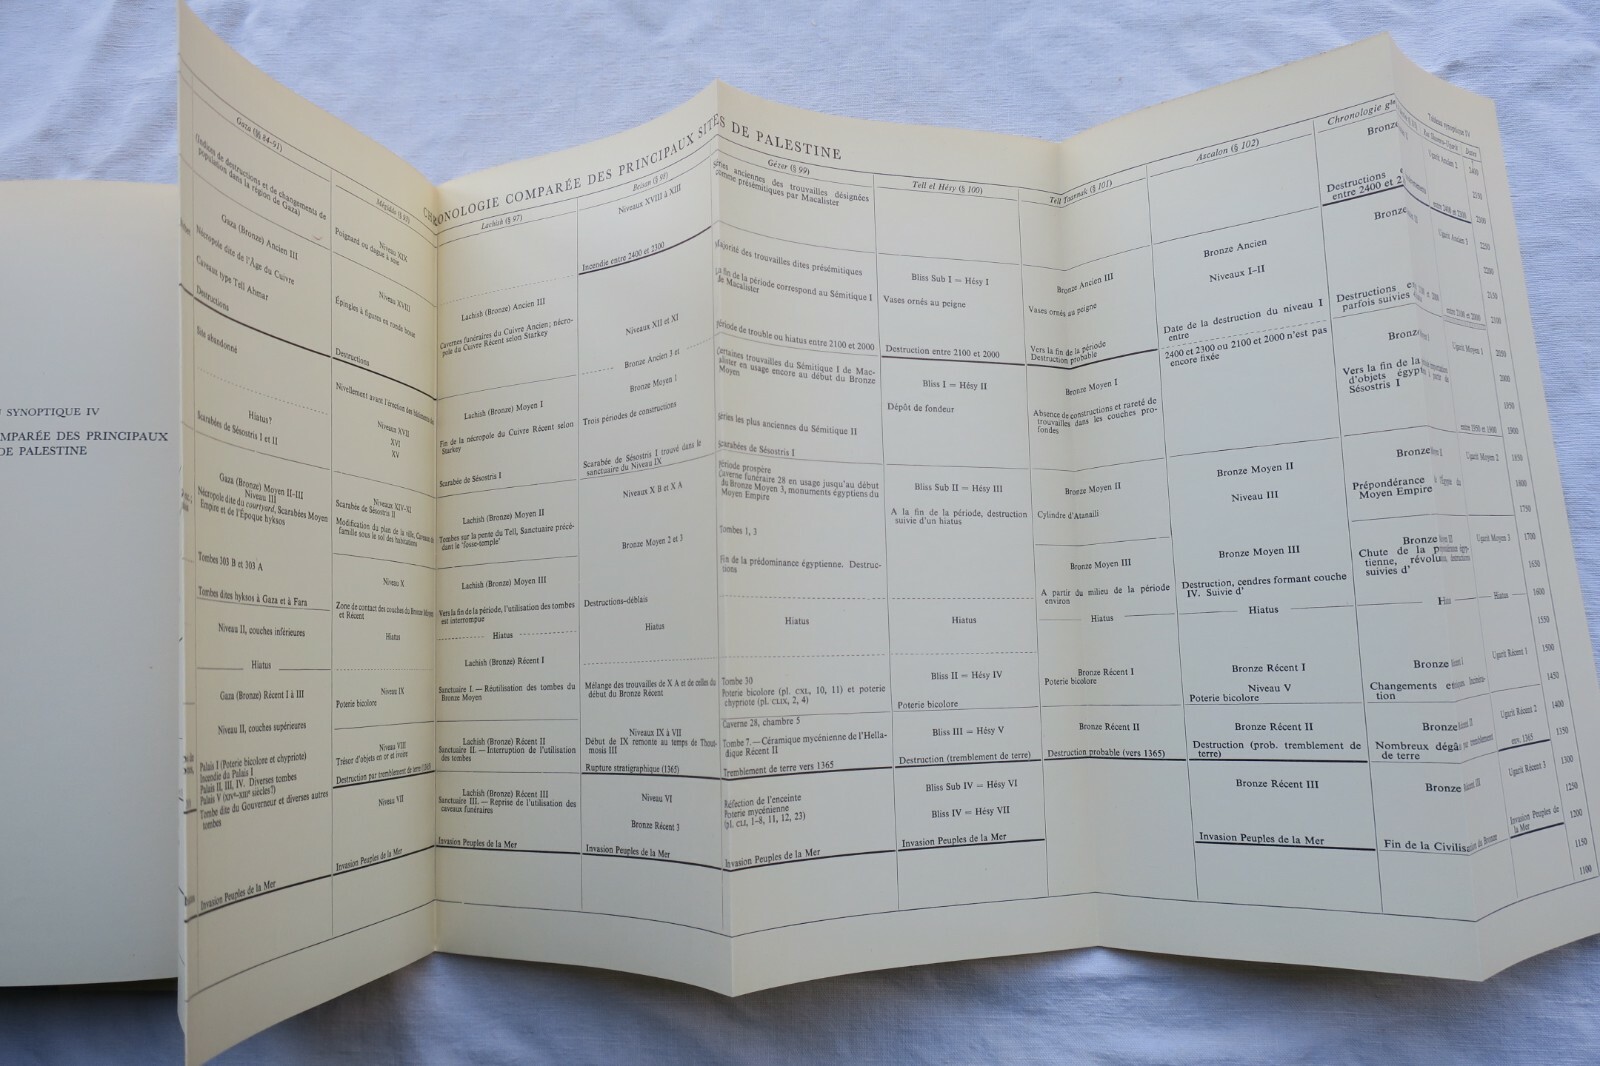 SYNOPTIQUE IV
COMPARÉE DES PRINCIPAUX
DE PALESTINE
CHRONOLOGIE COMPARÉE DES PRINCIPAUX SITES DE PALESTINE
Gaza (§§ 84-91)
(Indices de destructions et de changements de
population dans la région de Gaza)
Gaza (Bronze) Ancien III
Nécropole dite de l'Âge du Cuivre
Caveaux type Tell Ahmar
Destructions
Site abandonné
Hiatus?
Scarabées de Sésostris I et II
Gaza (Bronze) Moyen II-III
Niveau III
Nécropole dite du courtyard, Scarabées Moyen
Empire et de l'Époque hyksos
Tombes 303 B et 303 A
Tombes dites hyksos à Gaza et à Fara
Niveau II, couches inférieures
Hiatus
Gaza (Bronze) Récent I à III
Niveau II, couches supérieures
Palais I (Poterie bicolore et chypriote)
Incendie du Palais I
Palais II, III, IV. Diverses tombes
Palais V (XIVe-XIIIe siècles?)
Tombe dite du Gouverneur et diverses autres
tombes
Invasion Peuples de la Mer
Niveau XIX
Poignard ou dague à soie
Niveau XVIII
Épingles à figures en ronde bosse
Destructions
Nivellement avant l'érection des
Niveaux XVII
XVI
XV
Niveaux XIV-XI
Scarabée de Sésostris II
Modification du plan de la ville, Caveaux de
famille sous le sol des habitations
Niveau X
Zone de contact des couches du Bronze Moyen
et Récent
Hiatus
Niveau IX
Poterie bicolore
Niveau VIII
Trésor d'objets en or et ivoire
Destruction par tremblement de terre (1365
Niveau VII
Invasion Peuples de la Mer
Lachish (§ 97)
Lachish (Bronze) Ancien III
Cavernes funéraires du Cuivre Ancien; nécro-
pole du Cuivre Récent selon Starkey
Lachish (Bronze) Moyen I
Fin de la nécropole du Cuivre Récent selon
Starkey
Scarabée de Sésostris I
Lachish (Bronze) Moyen II
Tombes sur la pente du Tell, Sanctuaire précé-
dant le 'fosse-temple'
Lachish (Bronze) Moyen III
Vers la fin de la période, l'utilisation des tombes
est interrompue
Hiatus
Lachish (Bronze) Récent I
Sanctuaire I. — Réutilisation des tombes du
Bronze Moyen
Lachish (Bronze) Récent II
Sanctuaire II. — Interruption de l'utilisation
des tombes
Lachish (Bronze) Récent III
Sanctuaire III. — Reprise de l'utilisation des
caveaux funéraires
Invasion Peuples de la Mer
Beisan (§ 98)
Niveaux XVIII à XIII
Incendie entre 2400 et 2300
Niveaux XII et XI
Bronze Ancien 3 et
Bronze Moyen 1
Trois périodes de constructions
Scarabée de Sésostris I trouvé dans le
sanctuaire du Niveau IX
Niveaux X B et X A
Bronze Moyen 2 et 3
Destructions-déblais
Hiatus
Mélange des trouvailles de X A et de celles du
début du Bronze Récent
Niveaux IX à VII
Début de IX remonte au temps de Thout-
mosis III
Rupture stratigraphique (1365)
Niveau VI
Bronze Récent 3
Invasion Peuples de la Mer
Gézer (§ 99)
Séries anciennes des trouvailles désignées
comme présémitiques par Macalister
Majorité des trouvailles dites présémitiques
La fin de la période correspond au Sémitique I
de Macalister
Période de trouble ou hiatus entre 2100 et 2000
Certaines trouvailles du Sémitique I de Mac-
alister en usage encore au début du Bronze
Moyen
Séries les plus anciennes du Sémitique II
Scarabées de Sésostris I
Période prospère
Caverne funéraire 28 en usage jusqu'au début
du Bronze Moyen 3, monuments égyptiens du
Moyen Empire
Tombes 1, 3
Fin de la prédominance égyptienne. Destruc-
tions
Hiatus
Tombe 30
Poterie bicolore (pl. CXL, 10, 11) et poterie
chypriote (pl. CLIX, 2, 4)
Caverne 28, chambre 5
Tombe 7. — Céramique mycénienne de l'Hella-
dique Récent II
Tremblement de terre vers 1365
Réfection de l'enceinte
Poterie mycénienne
(pl. CLI, 1-8, 11, 12, 23)
Invasion Peuples de la Mer
Tell el Hésy (§ 100)
Bliss Sub I = Hésy I
Vases ornés au peigne
Destruction entre 2100 et 2000
Bliss I = Hésy II
Dépôt de fondeur
Bliss Sub II = Hésy III
A la fin de la période, destruction
suivie d'un hiatus
Hiatus
Bliss II = Hésy IV
Poterie bicolore
Bliss III = Hésy V
Destruction (tremblement de terre)
Bliss Sub IV = Hésy VI
Bliss IV = Hésy VII
Invasion Peuples de la Mer
Tell Taannak (§ 101)
Bronze Ancien III
Vases ornés au peigne
Vers la fin de la période
Destruction probable
Bronze Moyen I
Absence de constructions et rareté de
trouvailles dans les couches pro-
fondes
Bronze Moyen II
Cylindre d'Atanaili
Bronze Moyen III
A partir du milieu de la période
environ
Hiatus
Bronze Récent I
Poterie bicolore
Bronze Récent II
Destruction probable (vers 1365)
Ascalon (§ 102)
Bronze Ancien
Niveaux I-II
Date de la destruction du niveau I
entre
2400 et 2300 ou 2100 et 2000 n'est pas
encore fixée
Bronze Moyen II
Niveau III
Bronze Moyen III
Destruction, cendres formant couche
IV. Suivie d'
Hiatus
Bronze Récent I
Niveau V
Poterie bicolore
Bronze Récent II
Destruction (prob. tremblement de
terre)
Bronze Récent III
Invasion Peuples de la Mer
Chronologie
Bronze
Destructions
entre 2400 et
Bronze
Destructions
parfois suivies
Bronze
Vers la fin de la
d'objets égyp
Sésostris I
Bronze
Prépondérance
Moyen Empire
Bronze
Chute de la
tienne, révolu
suivies d'
Bronze
Changements
tion
Bronze
Nombreux dégâ
de terre
Bronze
Fin de la Civilisa
Tableau synoptique IV
Ugarit Ancien 2
Ugarit Ancien 3
Ugarit Moyen 1
Ugarit Moyen 2
Ugarit Moyen 3
Hiatus
Ugarit Récent 1
Ugarit Récent 2
env. 1365
Ugarit Récent 3
Invasion Peuples de
la Mer
Dates
2400
2350
2300
2250
2200
2150
2100
2050
2000
1950
1900
1850
1800
1750
1700
1650
1600
1550
1500
1450
1400
1350
1300
1250
1200
1150
1100